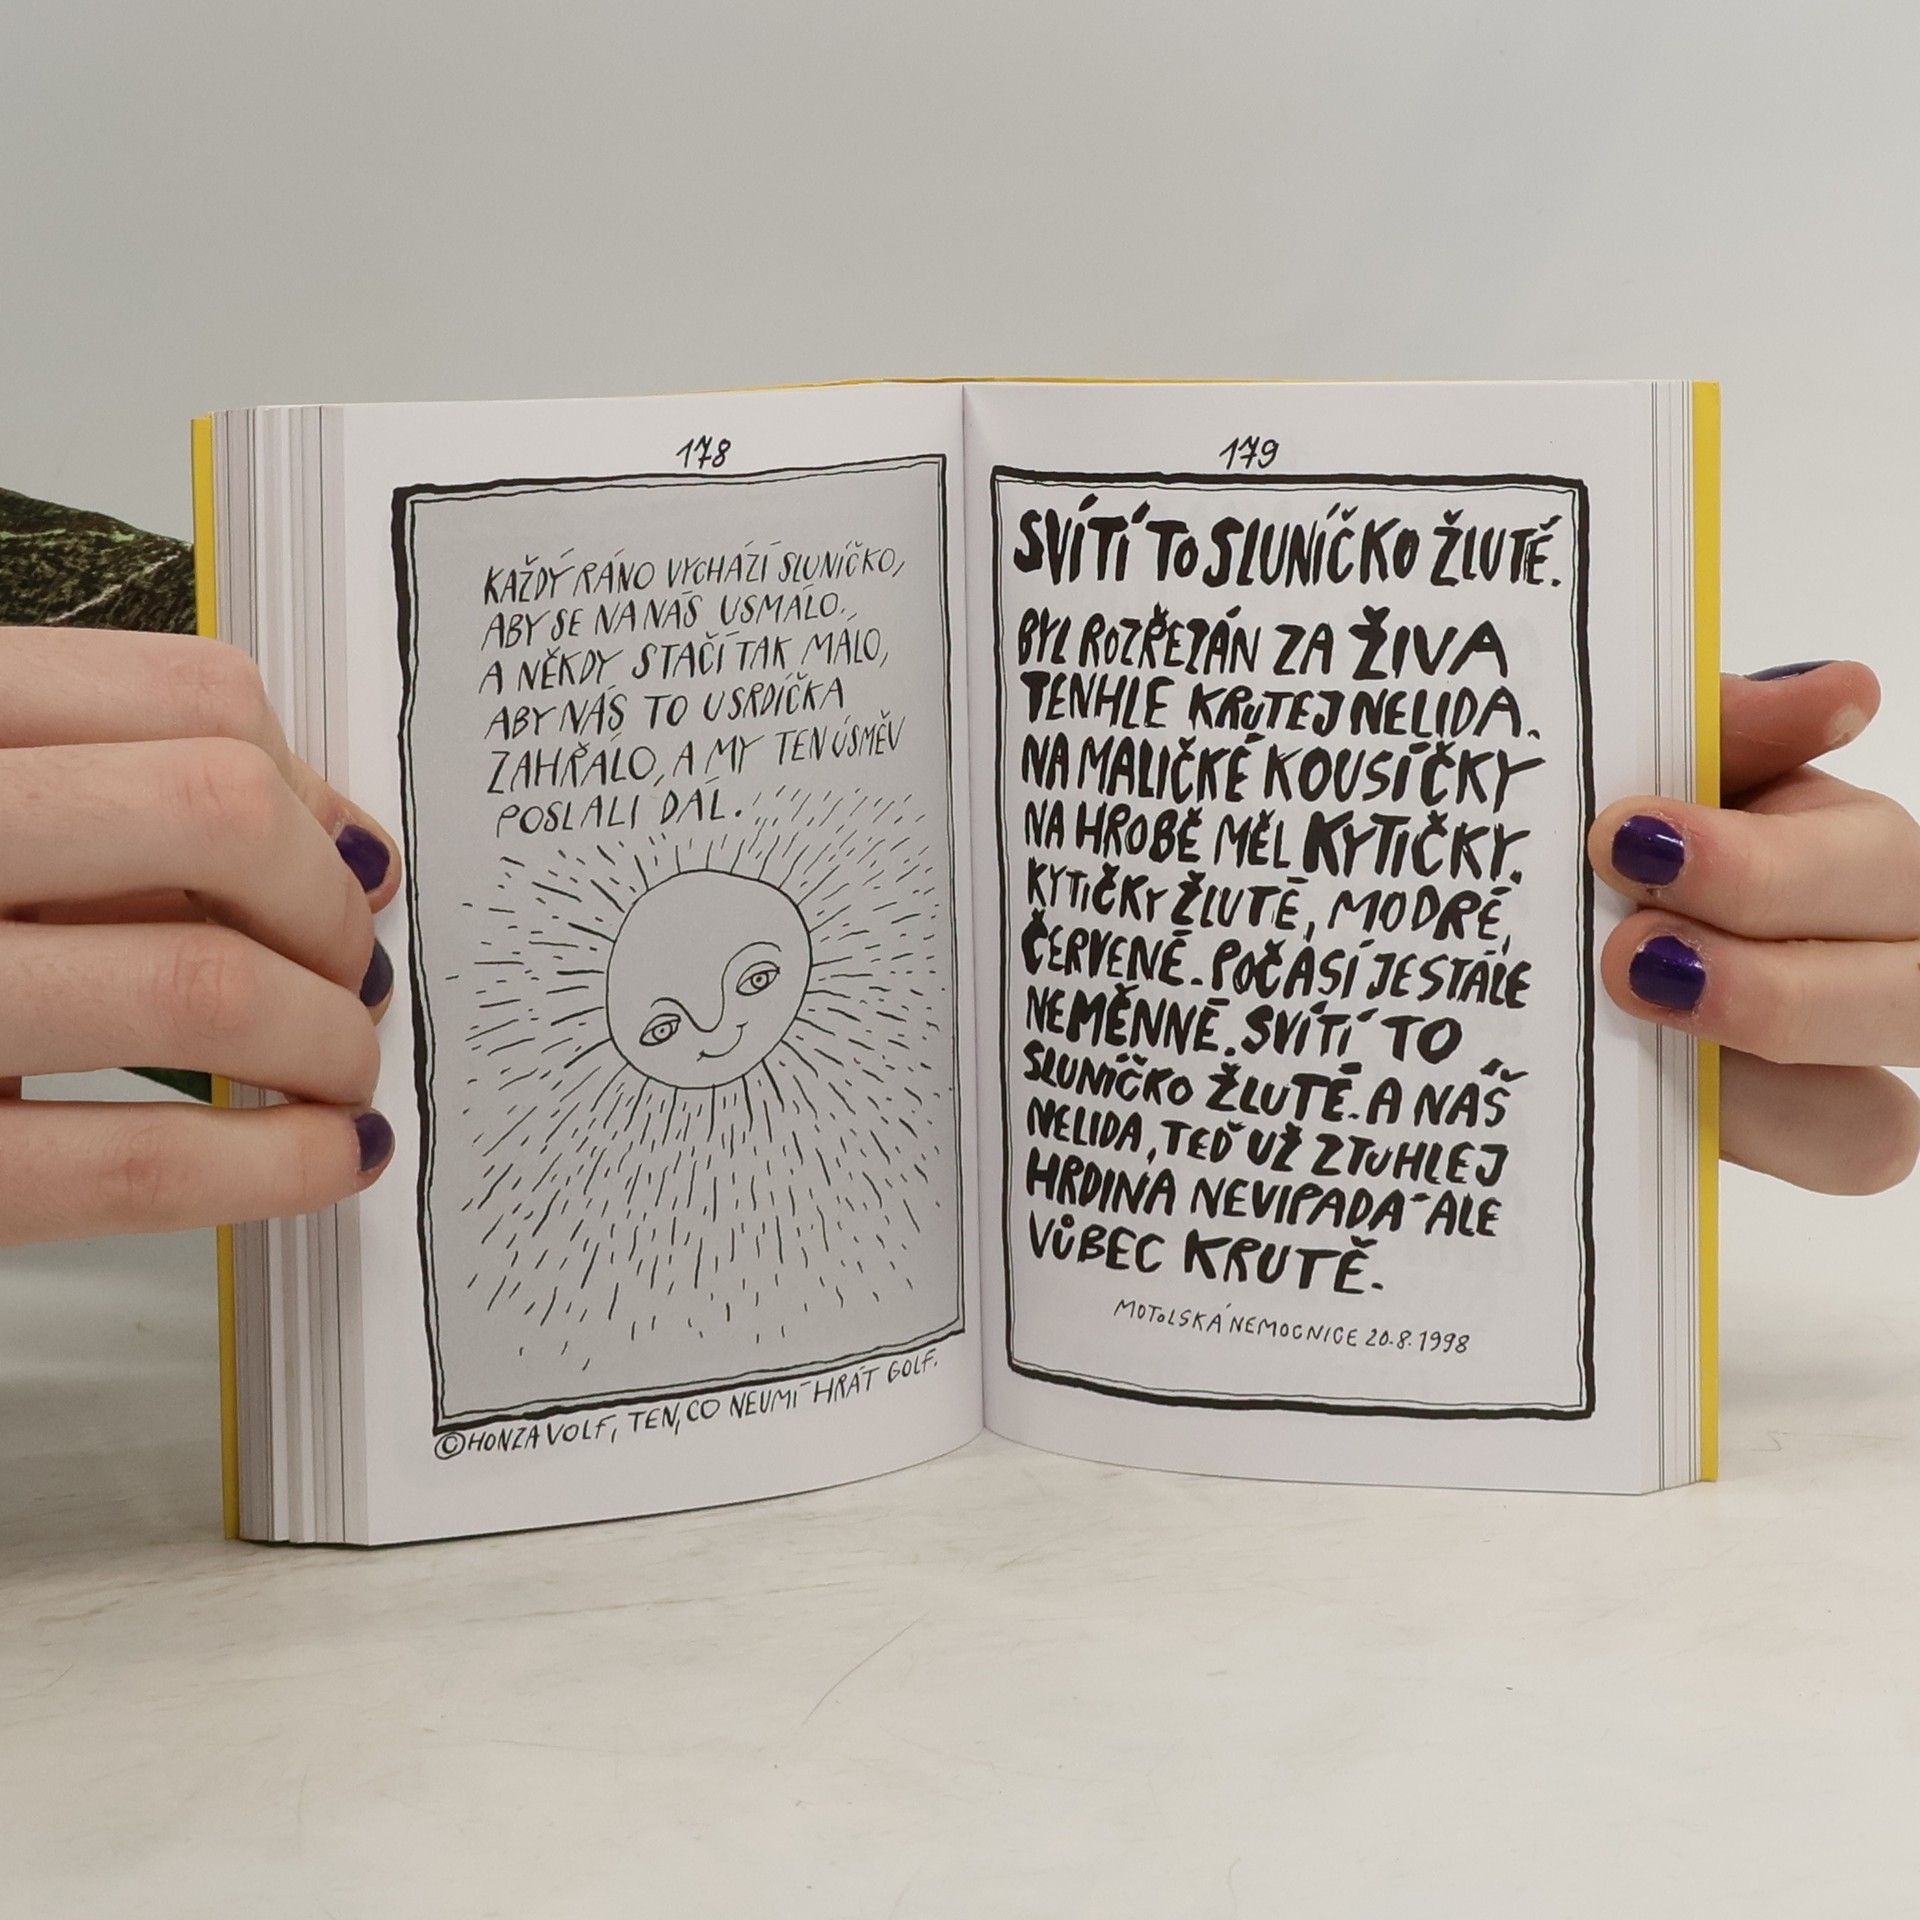 178
KAŽDÝ RÁNO VYCHÁZÍ SLUNÍČKO,
ABY SE NA NÁS USMÁLO.,
A NĚKDY STAČÍ TAK MÁLO,
ABY NÁS TO U SRDÍČKA
ZAHŘÁLO, A MY TEN ÚSMĚV
POSLALI DÁL.
© HONZA VOLF, TEN, CO NEUMÍ HRÁT GOLF.
179
SVÍTÍ TO SLUNÍČKO ŽLUTĚ.
BYL ROZŘEZÁN ZA ŽIVA
TENHLE KRUTEJ NELIDA.
NA MALIČKÉ KOUSÍČKY
NA HROBĚ MĚL KYTIČKY.
KYTIČKY ŽLUTÉ, MODRÉ,
ČERVENÉ. POČASÍ JE STÁLE
NEMĚNNÉ. SVÍTÍ TO
SLUNÍČKO ŽLUTĚ. A NÁŠ
NELIDA, TEĎ UŽ ZTUHLEJ
HRDINA NEVIPADÁ ALE
VŮBEC KRUTĚ.
MOTOLSKÁ NEMOCNICE 20.8.1998